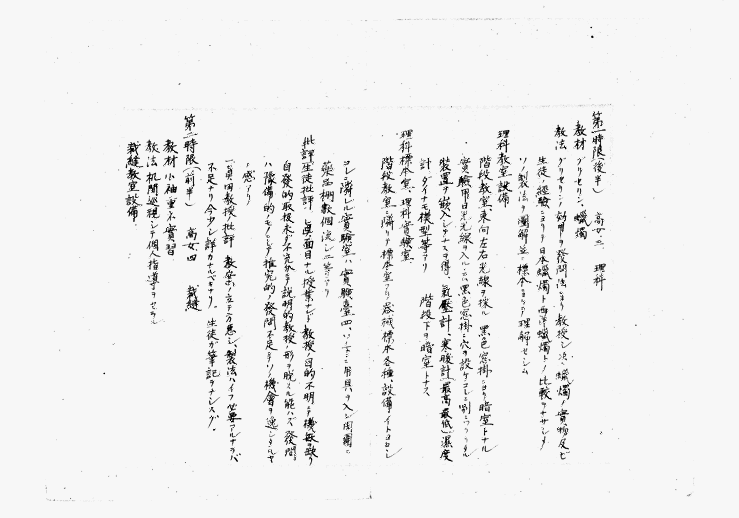 第一時限(後半) 高女三 理科
教材 グリセリン、蠟燭
教法 グリセリンノ効用ヲ發問法ニヨリ教授シ次ニ蠟燭ノ實物及ビ
生徒ノ經驗ニヨリテ日本蠟燭ト西洋蠟燭トノ比較ヲナサシメ
ソノ製法ヲ圖解並ニ標本ニヨリテ理解セシム
理科教室設備
階段教室、東向左右光線ヲ採ル 黑色窓掛ニヨリ暗室トナル
實驗用日光光線ヲ入ルニハ黑色窓掛ニ穴ヲ設ケコレニ
裝置ヲ嵌入シナスヲ得、氣壓計、寒暖計(最高最低)濕度
計、ダイナモ模型等アリ 階段下ヲ暗室トナス
理科標本室、理科實驗室
階段教室ニ隣リテ標本室アリ器械標本各種ノ設備
コレニ隣レル實驗室ハ實驗臺四、ソノ下ニ用具ヲ入ル周圍ニ
藥品棚數個流シ二等アリ
批評 生徒批評 眞面目ナル授業ナレド教授ノ目的不明ニテ機敏ヲ欠ク
自發的取扱未ダ不充分ニテ說明的教授ノ形ヲ脫スル能ハズ發問
ハ豫備的ノモノニシテ推究的ノ發問不足ナリソノ機會ヲ逸シタルヤ
ノ感アリ
眞田教授ノ批評 教案ノ立テ方惡シ、製法ハイフ必要アルナラバ
不足ナリ今少シ詳カナルベキナリ。生徒ガ筆記ヲナシスグ。
第二時限(前半) 高女四 裁縫
教材 小袖重ネ實習
教法 机間巡視シテ個人指導ヲセラル
裁縫教室設備